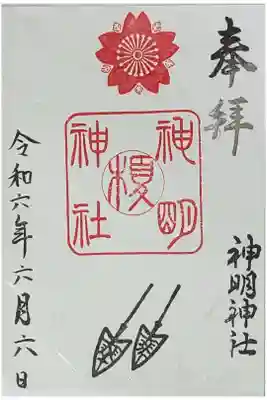 奉拝
神明神社
神明
神社
令和六年六月六日